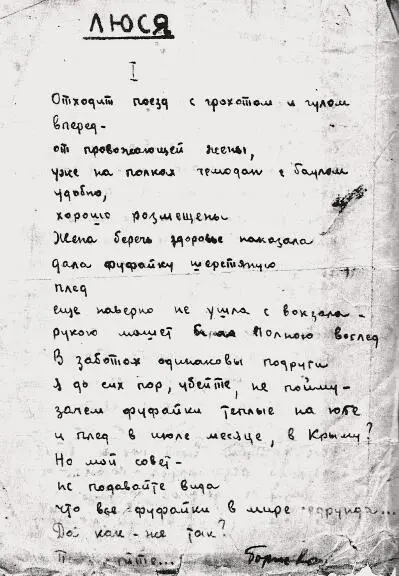 ЛЮСЯ
I
Отходит поезд с грохотом и гулом
вперед-
от провожающей жены,
уже на полках чемодан с баулом
удобно,
хорошо размещены
Жена беречь здоровье наказала
дала фуфайку шерстяную
плед
еще наверно не ушла с вокзала -
рукою машет полною вослед
В заботах одинаковы подруги
Я до сих пор, убейте, не пойму-
зачем фуфайки теплые на юге
и плед в июле месяце, в Крыму?
Но мой совет-
не подавайте вида
что все фуфайки в мире ерунда...
Да как-же так?